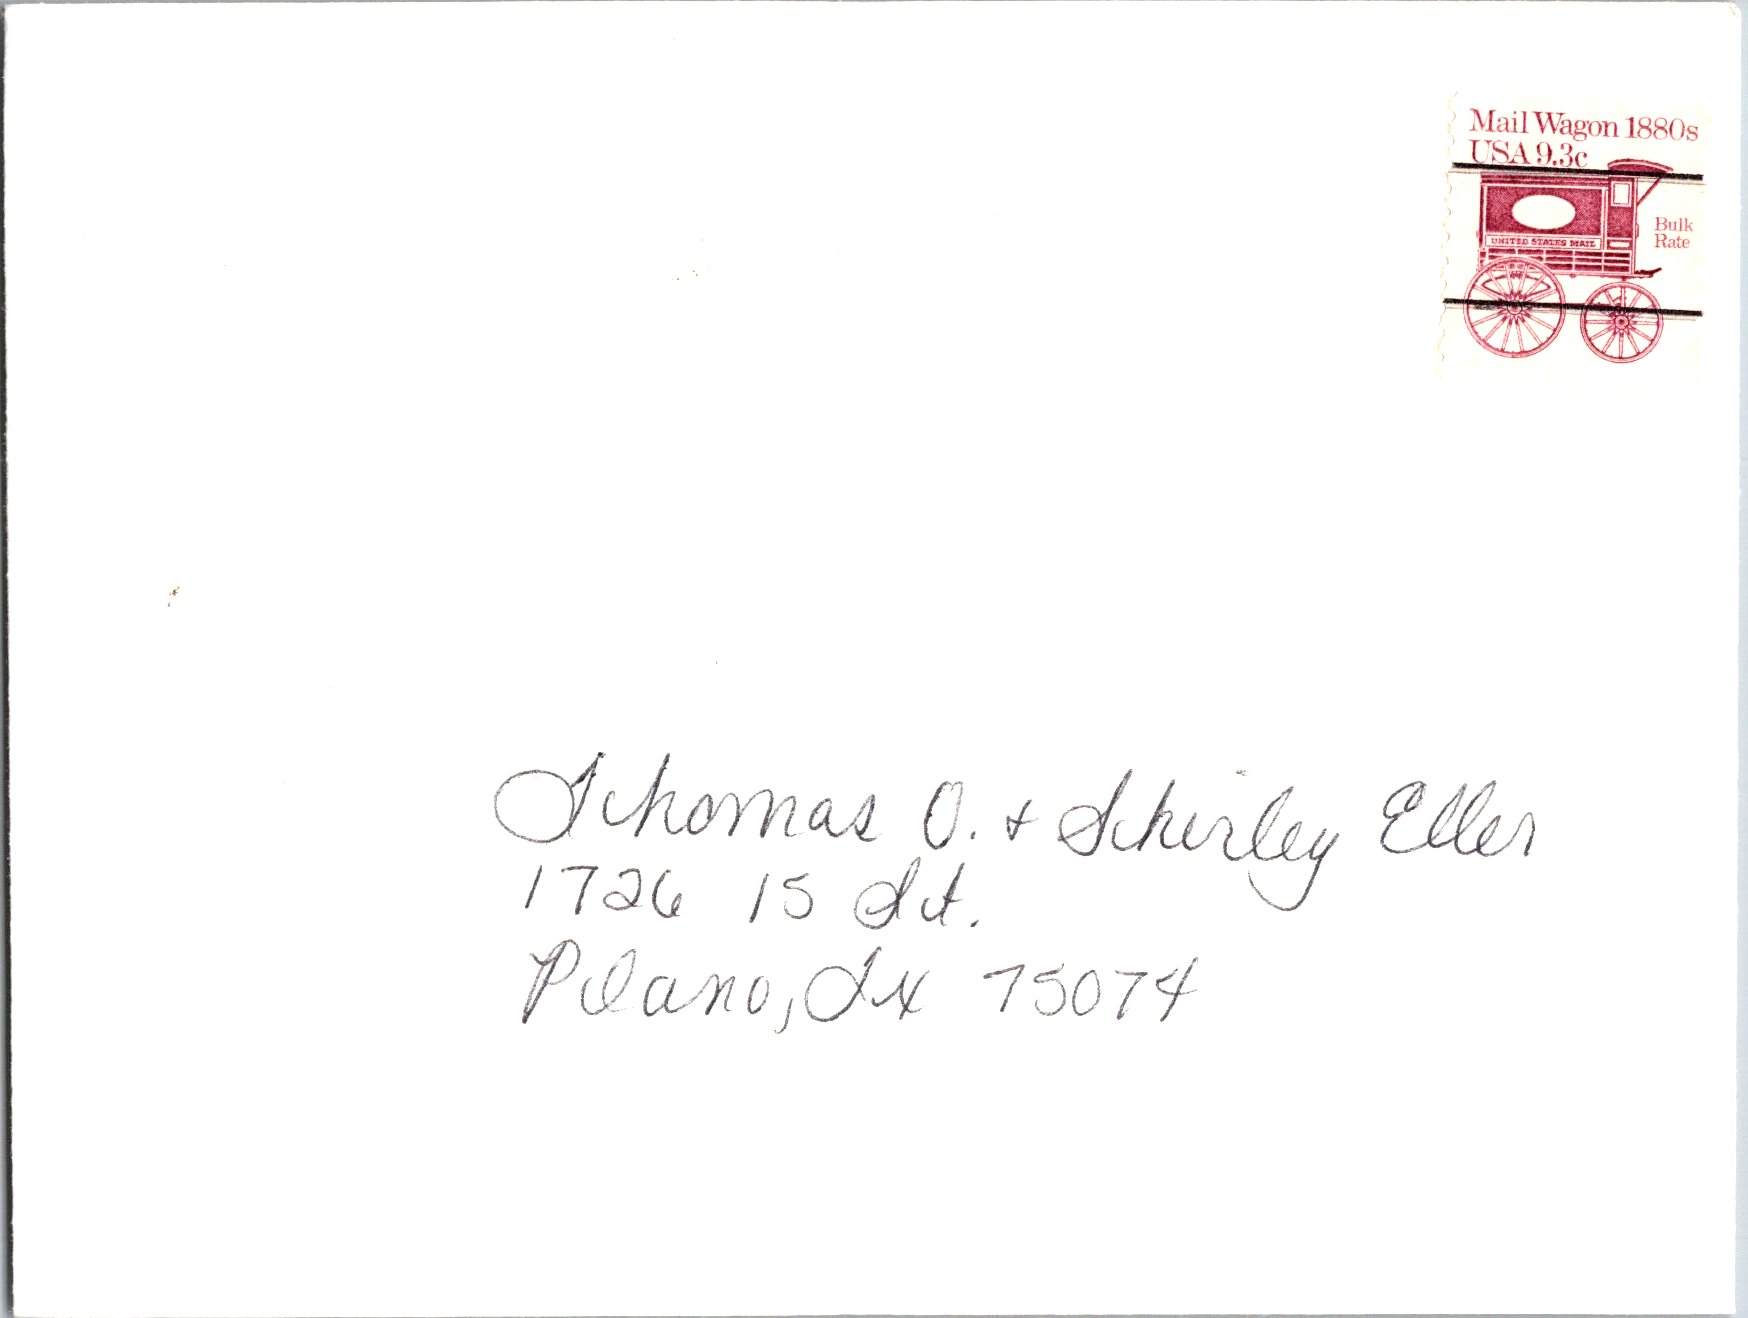 Mail Wagon 1880s
USA 9.3c
Bulk
Rate
UNITED STATES MAIL
Thomas O. + Shirley Eller
1726 15 St.
Plano, Tx 75074